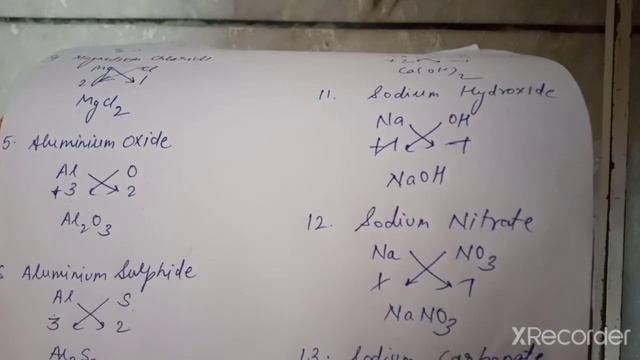 Magnesium Chloride
Mg Cl
2 1
MgCl2
5. Aluminium Oxide
Al O
+3 2
Al2O3
Aluminium Sulphide
Al S
3 2
Al2S
Ca(OH)2
11. Sodium Hydroxide
Na OH
+1 -1
NaOH
12. Sodium Nitrate
Na NO3
NaNO3
13. Sodium Carbonate
XRecorder